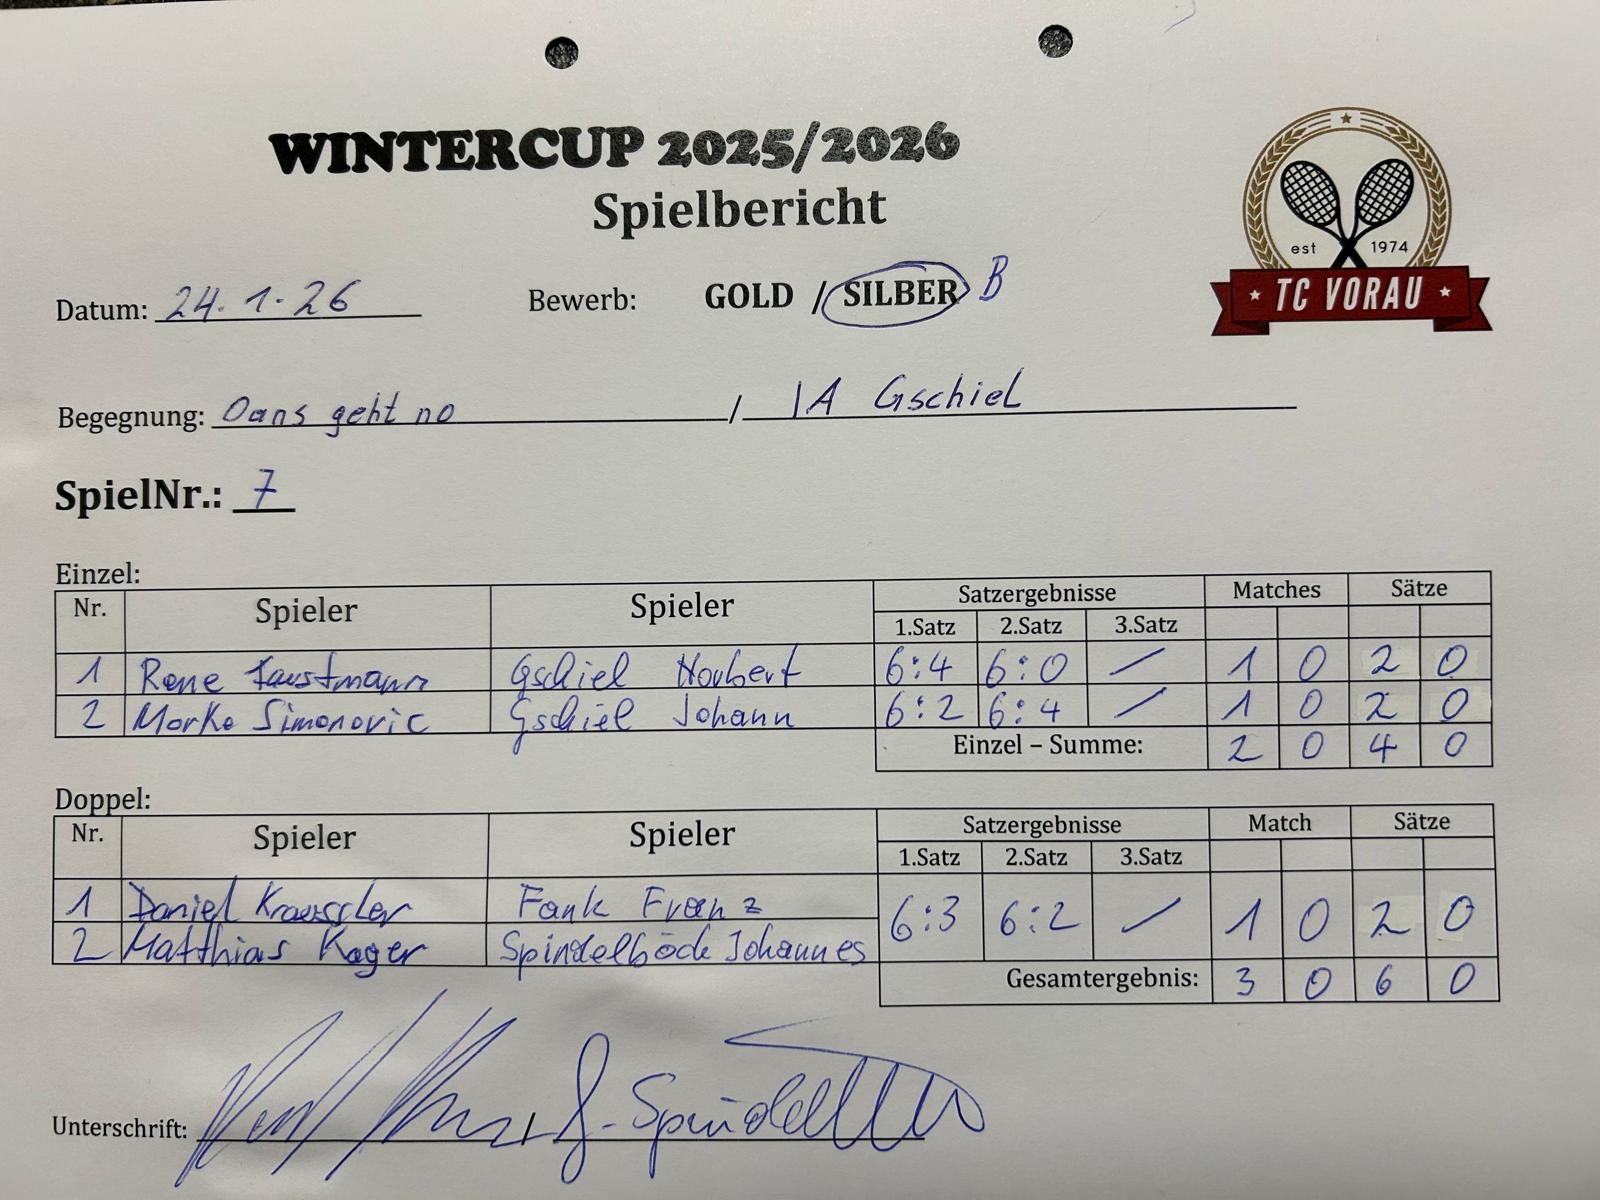 WINTERCUP 2025/2026
Spielbericht
est 1974
TC VORAU
Datum: 24.1.26 Bewerb: GOLD / SILBER B
Begegnung: Oans geht no / 1A Gschiel
SpielNr.: 7
Einzel:
Nr. Spieler Spieler Satzergebnisse Matches Sätze
1.Satz 2.Satz 3.Satz
1 Rene Faustmann Gschiel Norbert 6:4 6:0 / 1 0 2 0
2 Marko Simonovic Gschiel Johann 6:2 6:4 / 1 0 2 0
Einzel – Summe: 2 0 4 0
Doppel:
Nr. Spieler Spieler Satzergebnisse Match Sätze
1.Satz 2.Satz 3.Satz
1 Daniel Fank Franz 6:3 6:2 / 1 0 2 0
2 Matthias Kager Spindelböck Johannes
Gesamtergebnis: 3 0 6 0
Unterschrift: